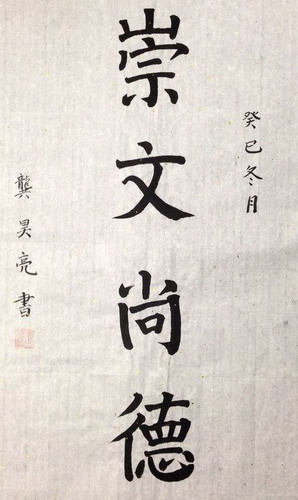 癸巳冬月
崇文尚德
龔昊亮書